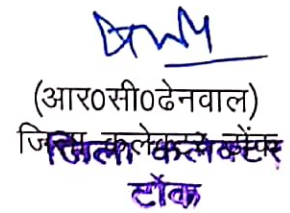 (आर0सी0ढेनवाल)
जिला कलेक्टर टोंक
जिला कलेक्टर
टोंक